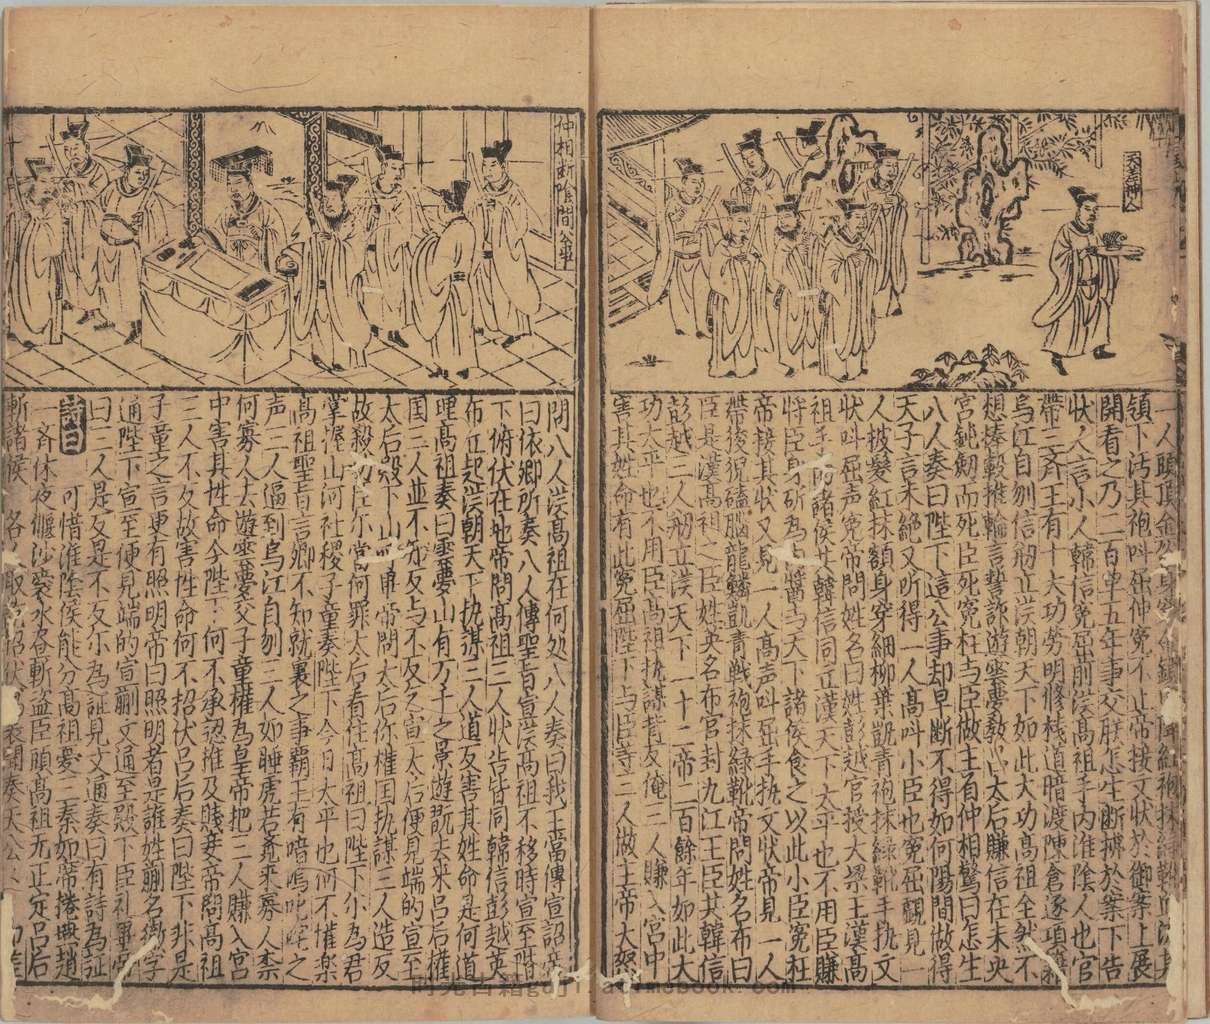 天差仲人
一人頭頂金
領下沾其袍叫屈仲冤不止帝接文狀於御案上展
開看之乃二百単五年事交朕怎生断拂於案下告
狀人言小人韓信冤屈前漢高祖手内淮陰人也官
帶三齐王有十大功勞明修栈道暗渡陳倉逐項籍
烏江自刎信剏立漢朝天下如此大功高祖全然不
想捧轂推輪言誓詐遊雲夢教呂太后賺信在未央
宮鈍劒而死臣死冤枉与臣做主有仲相驚曰怎生
八人奏曰陛下這公事却早断不得如何陽間做得
天子言未絶又听得一人高叫小臣也冤屈覷見一
人披髮紅抹額身穿細柳葉凱青袍抹緑靴手执文
狀叫屈声冤帝問姓名曰姓彭越官授大梁王漢高
祖手内諸侯共韓信同立漢天下太平也不用臣賺
将臣身斫為肉醬与天下諸侯食之以此小臣冤枉
帝接其狀又見一人高声叫屈手执文狀帝見一人
帶後猊磕腦龍鱗凱青戦袍抹緑靴帝問姓名布曰
臣是漢高祖之臣姓英名布官封九江王臣共韓信
彭越三人剏立漢天下一十二帝二百餘年如此大
功太平也不用臣高祖执謀背友俺三人賺入宮中
害其姓命有此冤屈陛下与臣等三人做主帝大怒
仲相断陰間公事
問八人漢高祖在何処八人奏曰我王當傳宣詔帝
曰依卿所奏八人傳聖旨宣漢高祖不移時宣至階
下俯伏在地帝問高祖三人状告皆同韓信彭越英
布立起漢朝天下执謀三人道反害其姓命是何道
理高祖奏曰雲夢山有万千之景遊翫去来呂后權
国三人並不知反与不反乞宣太后便見端的宣至
太后殿下山呼帝問太后你權国执謀三人造反
故殺功臣尔當何罪太后看住高祖曰陛下尔為君
掌握山河社稷子童奏陛下今日太平也何不懽楽
高祖聖旨言卿不知就裏之事霸王有喑嗚叱咤之
声三人逼到烏江自刎三人如睡虎若竟来寡人柰
何寡人去遊雲夢交子童權為皇帝把三人賺入宮
中害其性命今陛下何不承認推及賤妾帝問高祖
三人不反故害性命何不招伏呂后奏曰陛下非是
子童之言更有照明帝曰照明者是誰姓蒯名徹字
通陛下宣至便見端的宣蒯文通至殿下臣礼畢帝
曰三人是反是不反尔為証見文通奏曰有詩為証
詩曰　可惜淮陰侯能分高祖憂三秦如蓆捲燕趙
一齐休夜偃沙囊水昼斬盗臣頭高祖无正定呂后
斬諸侯